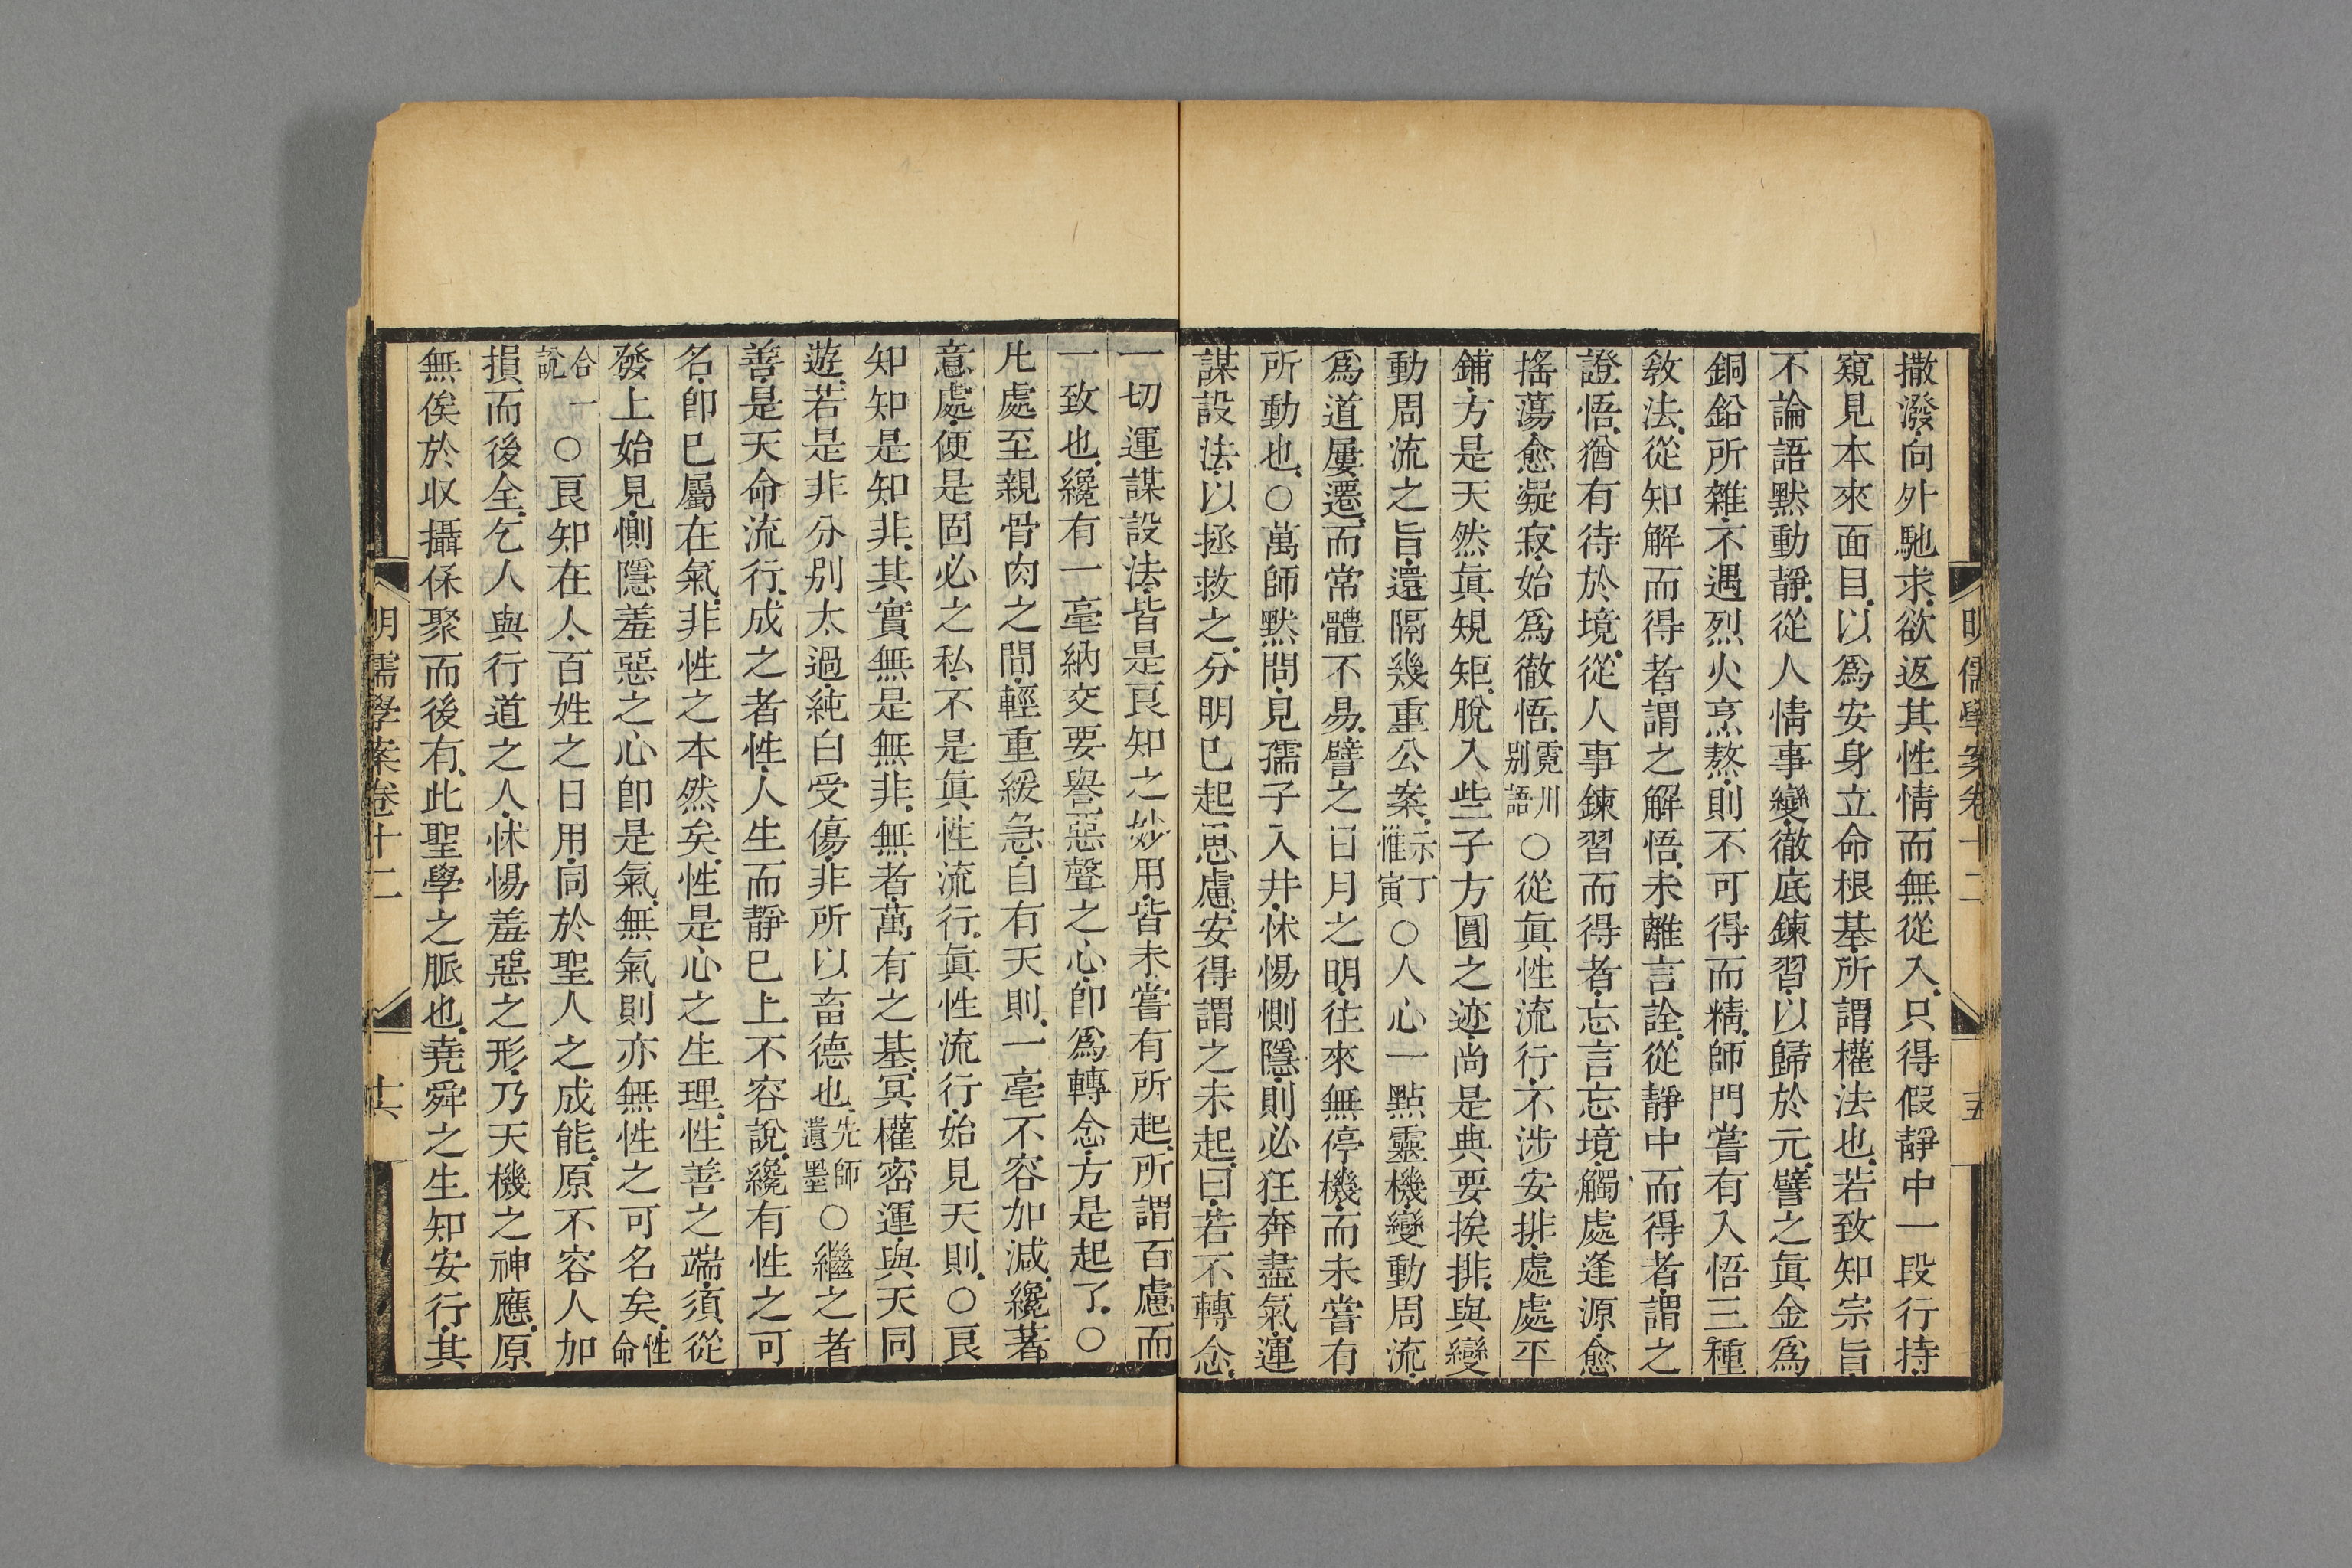 明儒學案卷十二 五
撒潑向外馳求欲返其性情而無從入只得假靜中一段行持
窺見本來面目以爲安身立命根基所謂權法也若致知宗旨
不論語默動靜從人情事變徹底鍊習以歸於元譬之眞金爲
銅鉛所雜不遇烈火烹熬則不可得而精師門嘗有入悟三種
敎法從知解而得者謂之解悟未離言詮從靜中而得者謂之
證悟猶有待於境從人事鍊習而得者忘言忘境觸處逢源愈
搖蕩愈凝寂始爲徹悟霓川別語○從眞性流行不涉安排處處平
鋪方是天然眞規矩脫入些子方圓之迹尚是典要挨排與變
動周流之旨還隔幾重公案示丁惟寅○人心一點靈機變動周流
爲道屢遷而常體不易譬之日月之明往來無停機而未嘗有
所動也○萬師默問見孺子入井怵惕惻隱則必狂奔盡氣運
謀設法以拯救之分明已起思慮安得謂之未起曰若不轉念
一切運謀設法皆是良知之妙用皆未嘗有所起所謂百慮而
一致也纔有一毫納交要譽惡聲之心卽爲轉念方是起了○
凡處至親骨肉之間輕重緩急自有天則一毫不容加減纔著
意處便是固必之私不是眞性流行眞性流行始見天則○良
知知是知非其實無是無非無者萬有之基冥權密運與天同
遊若是非分別太過純白受傷非所以畜德也先師遺墨○繼之者
善是天命流行成之者性人生而靜已上不容說纔有性之可
名卽已屬在氣非性之本然矣性是心之生理性善之端須從
發上始見惻隱羞惡之心卽是氣無氣則亦無性之可名矣性命
合一說○良知在人百姓之日用同於聖人之成能原不容人加
損而後全乞人與行道之人怵惕羞惡之形乃天機之神應原
無俟於收攝保聚而後有此聖學之脈也堯舜之生知安行其
明儒學案卷十二 十六